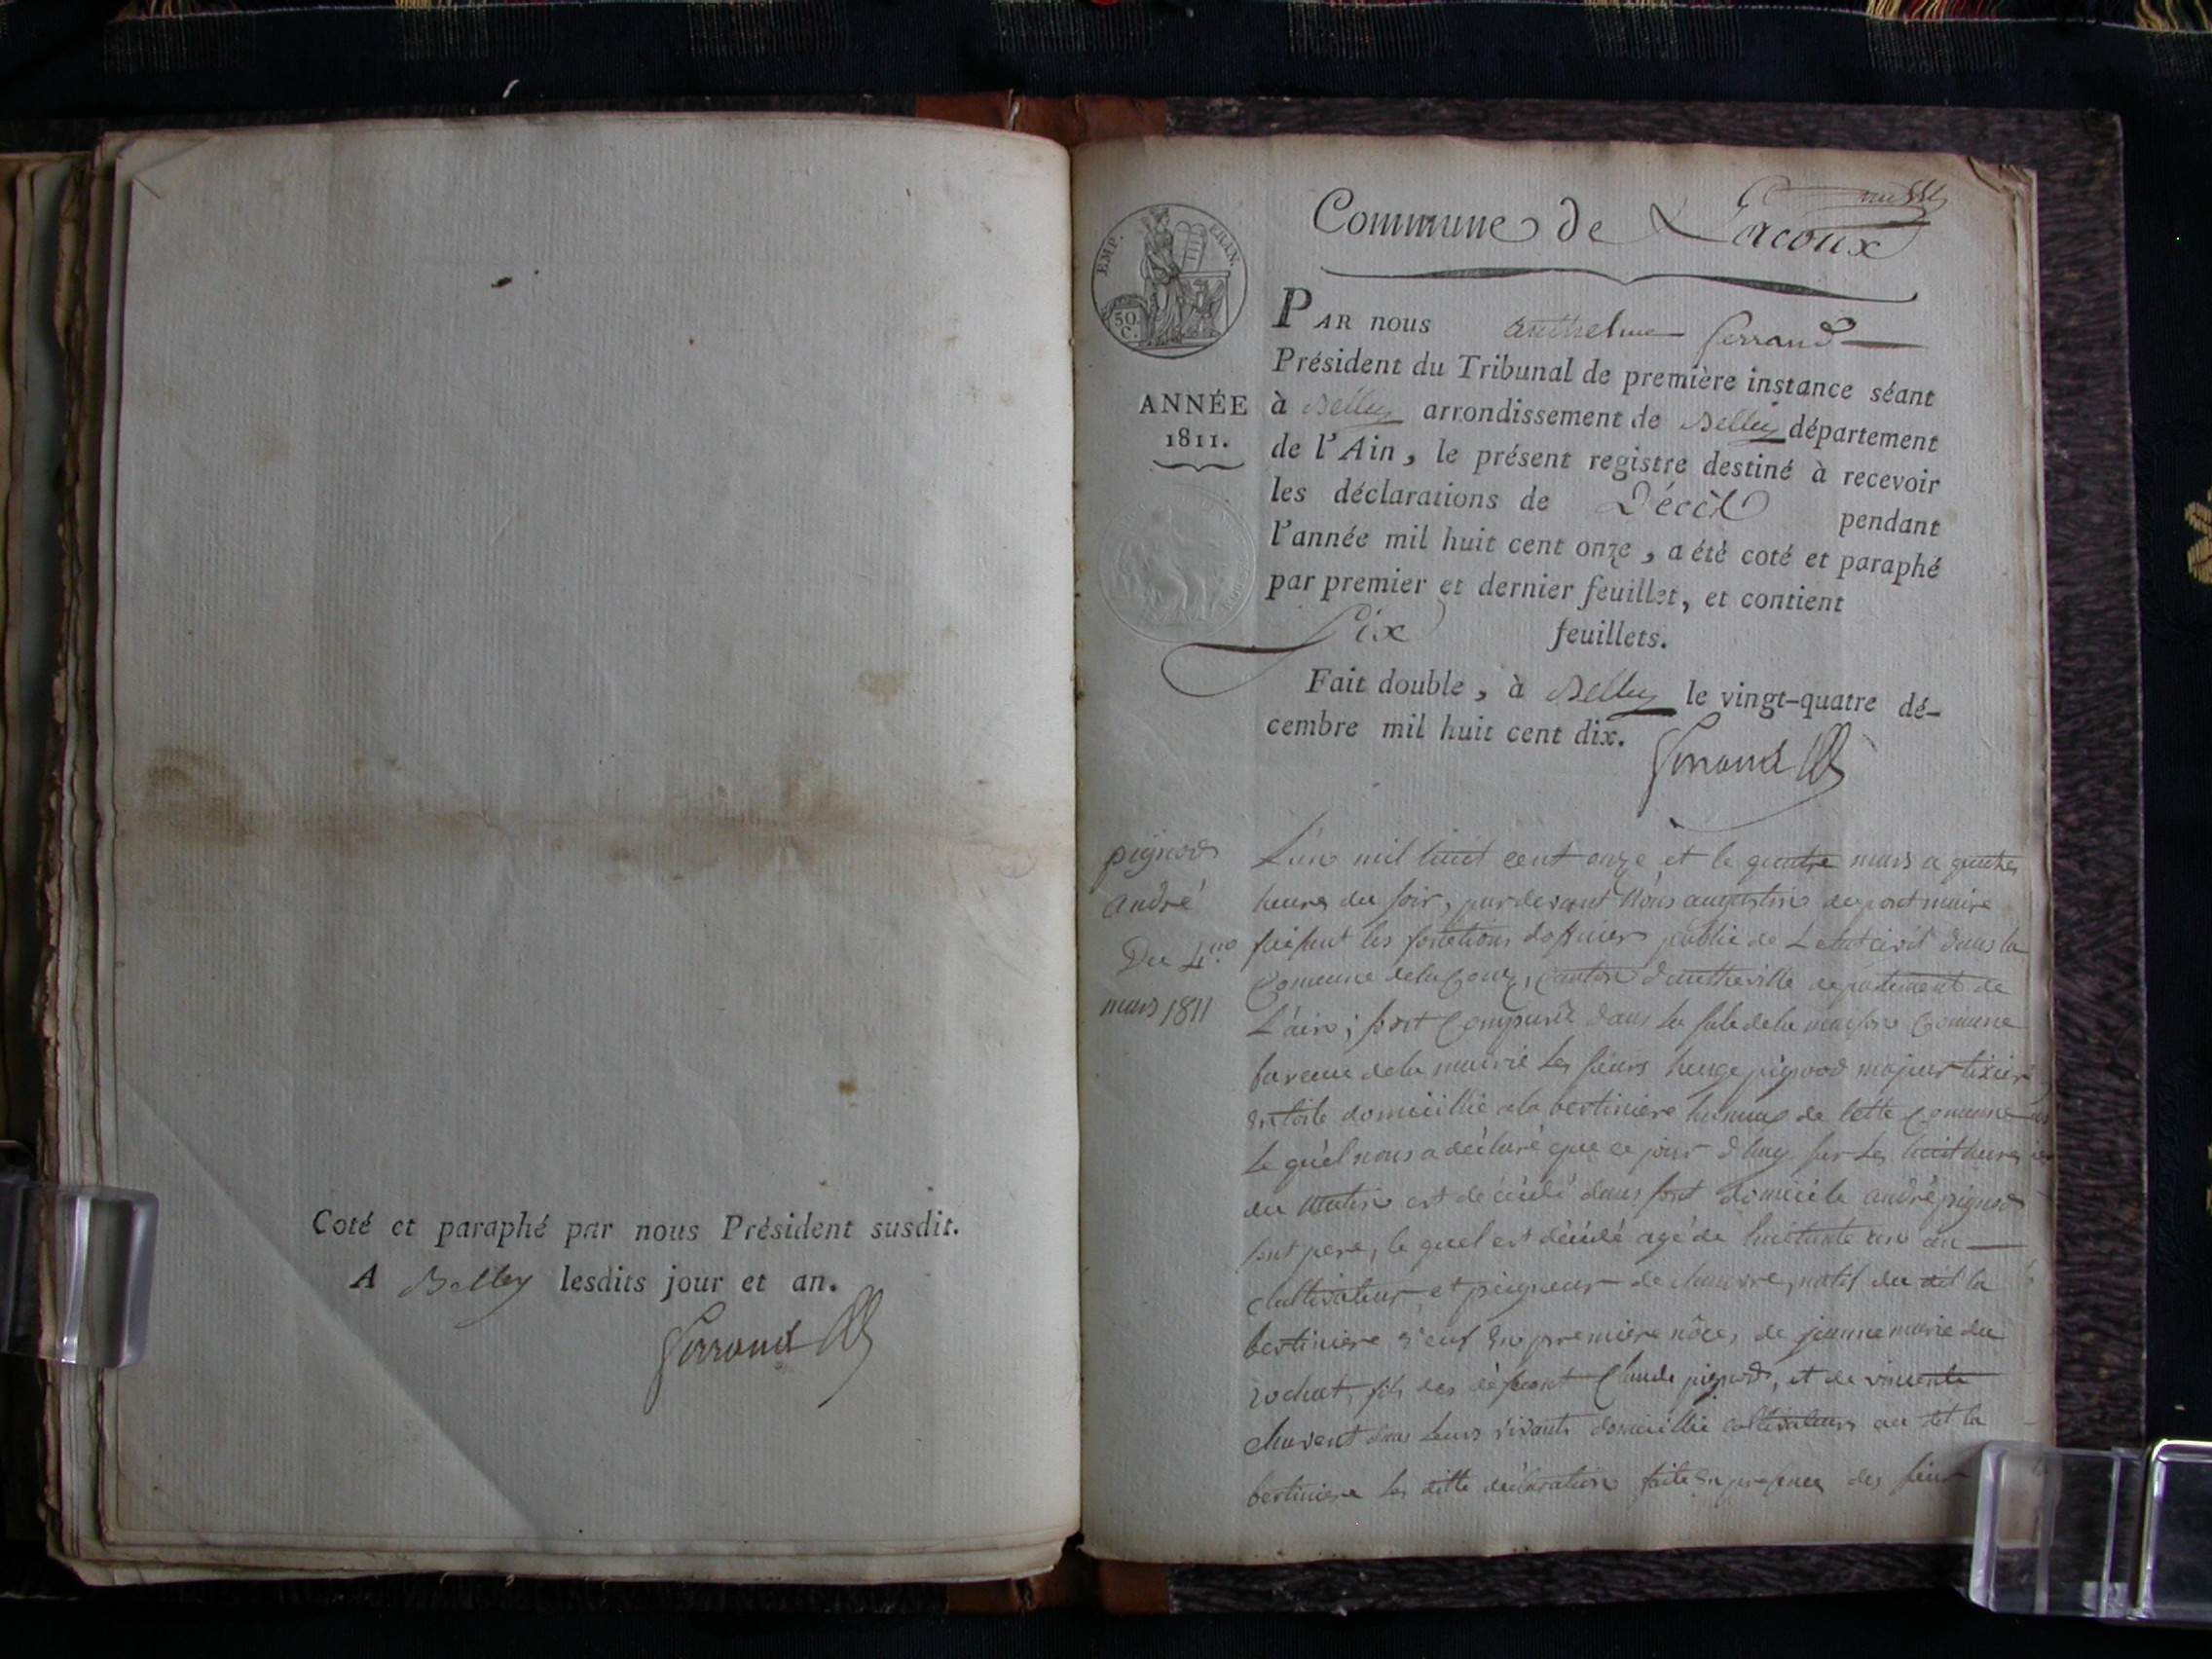 Coté et paraphé par nous Président susdit.
A Belley lesdits jour et an.
Ferrand
Commune de Lacoux
EMP. FRAN.
50 C.
ANNÉE
1811.
PAR nous anthelme ferrand
Président du Tribunal de première instance séant
à Belley arrondissement de Belley département
de l'Ain, le présent registre destiné à recevoir
les déclarations de Décès pendant
l'année mil huit cent onze, a été coté et paraphé
par premier et dernier feuillet, et contient
Six feuillets.
Fait double, à Belley le vingt-quatre dé-
cembre mil huit cent dix.
Ferrand
pignod
andré
Du 4
mars 1811
L'an mil huit cent onze et le quatre mars a quatre
heures du soir, pardevant Nous augustin maire
faisant les fonctions public de L'etat civil dans la
Comune de la Coux, canton d'autheville departement de
L'ain; sont Comparû dans la sale de la maison Comune
bureau de la mairie les sieurs pignod majeur tixier
en toile domicillie a la bertiniere hameau de cette Comune
le quel nous a déclaré que ce jour d'huy sur les huit heures
du matin est décédé dans sont domicile andré pignod
sont pere, le quel est décédé agé de huittante un an
Cultivateur et peigneur de chanvre, natif du dit la
bertiniere veuf en premiere nôce, de jeanne marie du
rochat, fils des défeunt Claude pignod, et de vincente
chavent dans leurs vivants domicillie cultivateurs au dit la
bertiniere les ditte déclaration faite en presence des sieur